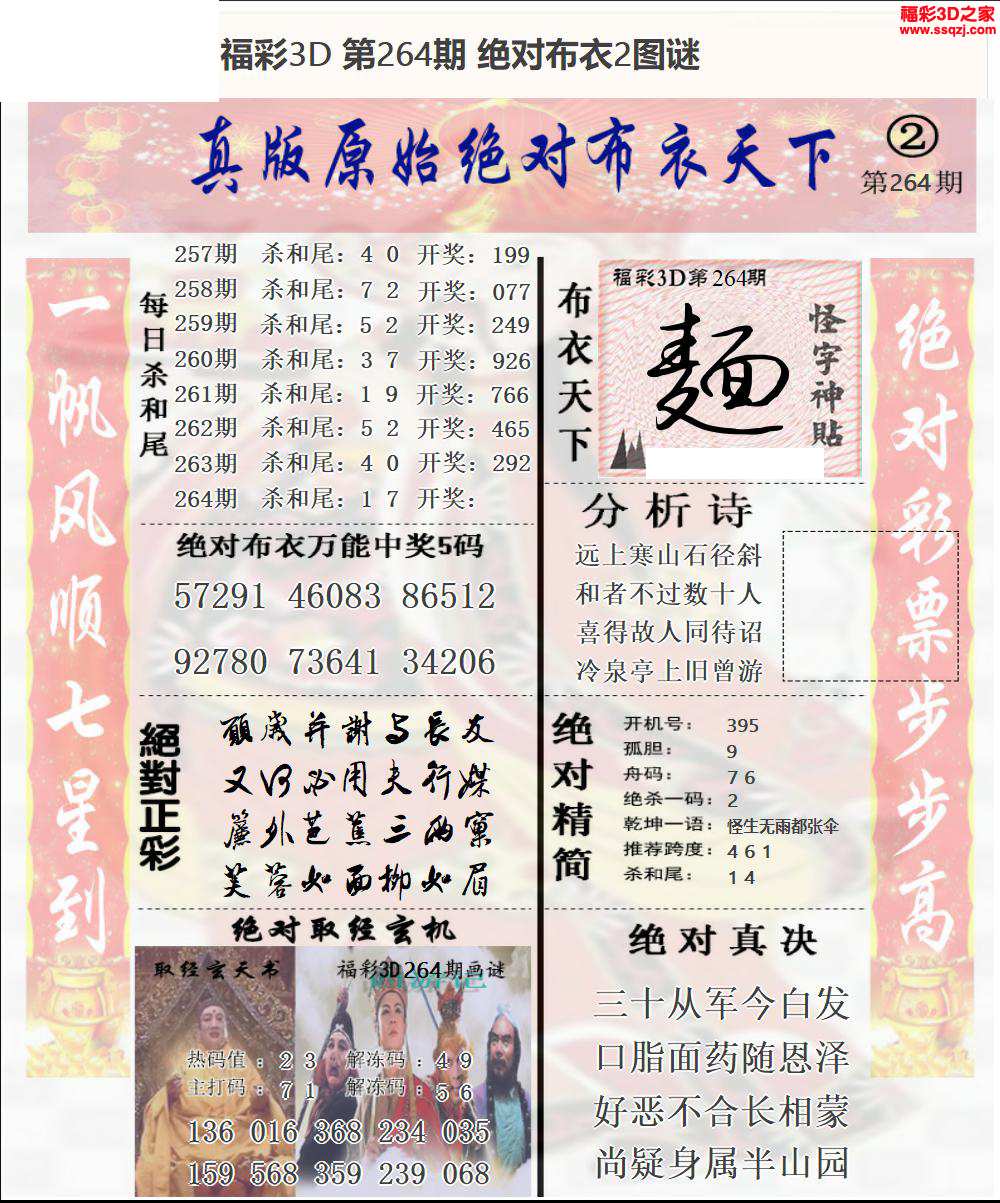 福彩3D之家
www.ssqzj.com
福彩3D 第264期 绝对布衣2图谜
真版原始绝对布衣天下
②
第264期
一帆风顺七星到
每日杀和尾
257期 杀和尾：4 0 开奖：199
258期 杀和尾：7 2 开奖：077
259期 杀和尾：5 2 开奖：249
260期 杀和尾：3 7 开奖：926
261期 杀和尾：1 9 开奖：766
262期 杀和尾：5 2 开奖：465
263期 杀和尾：4 0 开奖：292
264期 杀和尾：1 7 开奖：
绝对布衣万能中奖5码
57291 46083 86512
92780 73641 34206
絕對正彩
願岁并謝与長友
又何必用夫行媒
簾外芭蕉三两窠
芙蓉如面柳如眉
绝对取经玄机
取经玄天书
福彩3D264期画谜
热码值：2 3 解冻码：4 9
主打码：7 1 解冻码：5 6
136 016 368 234 035
159 568 359 239 068
布衣天下
福彩3D第264期
麵
怪字神貼
分析诗
远上寒山石径斜
和者不过数十人
喜得故人同待诏
冷泉亭上旧曾游
绝对精简
开机号： 395
孤胆： 9
舟码： 7 6
绝杀一码：2
乾坤一语：怪生无雨都张伞
推荐跨度：4 6 1
杀和尾： 1 4
绝对真决
三十从军今白发
口脂面药随恩泽
好恶不合长相蒙
尚疑身属半山园
绝对彩票步步高